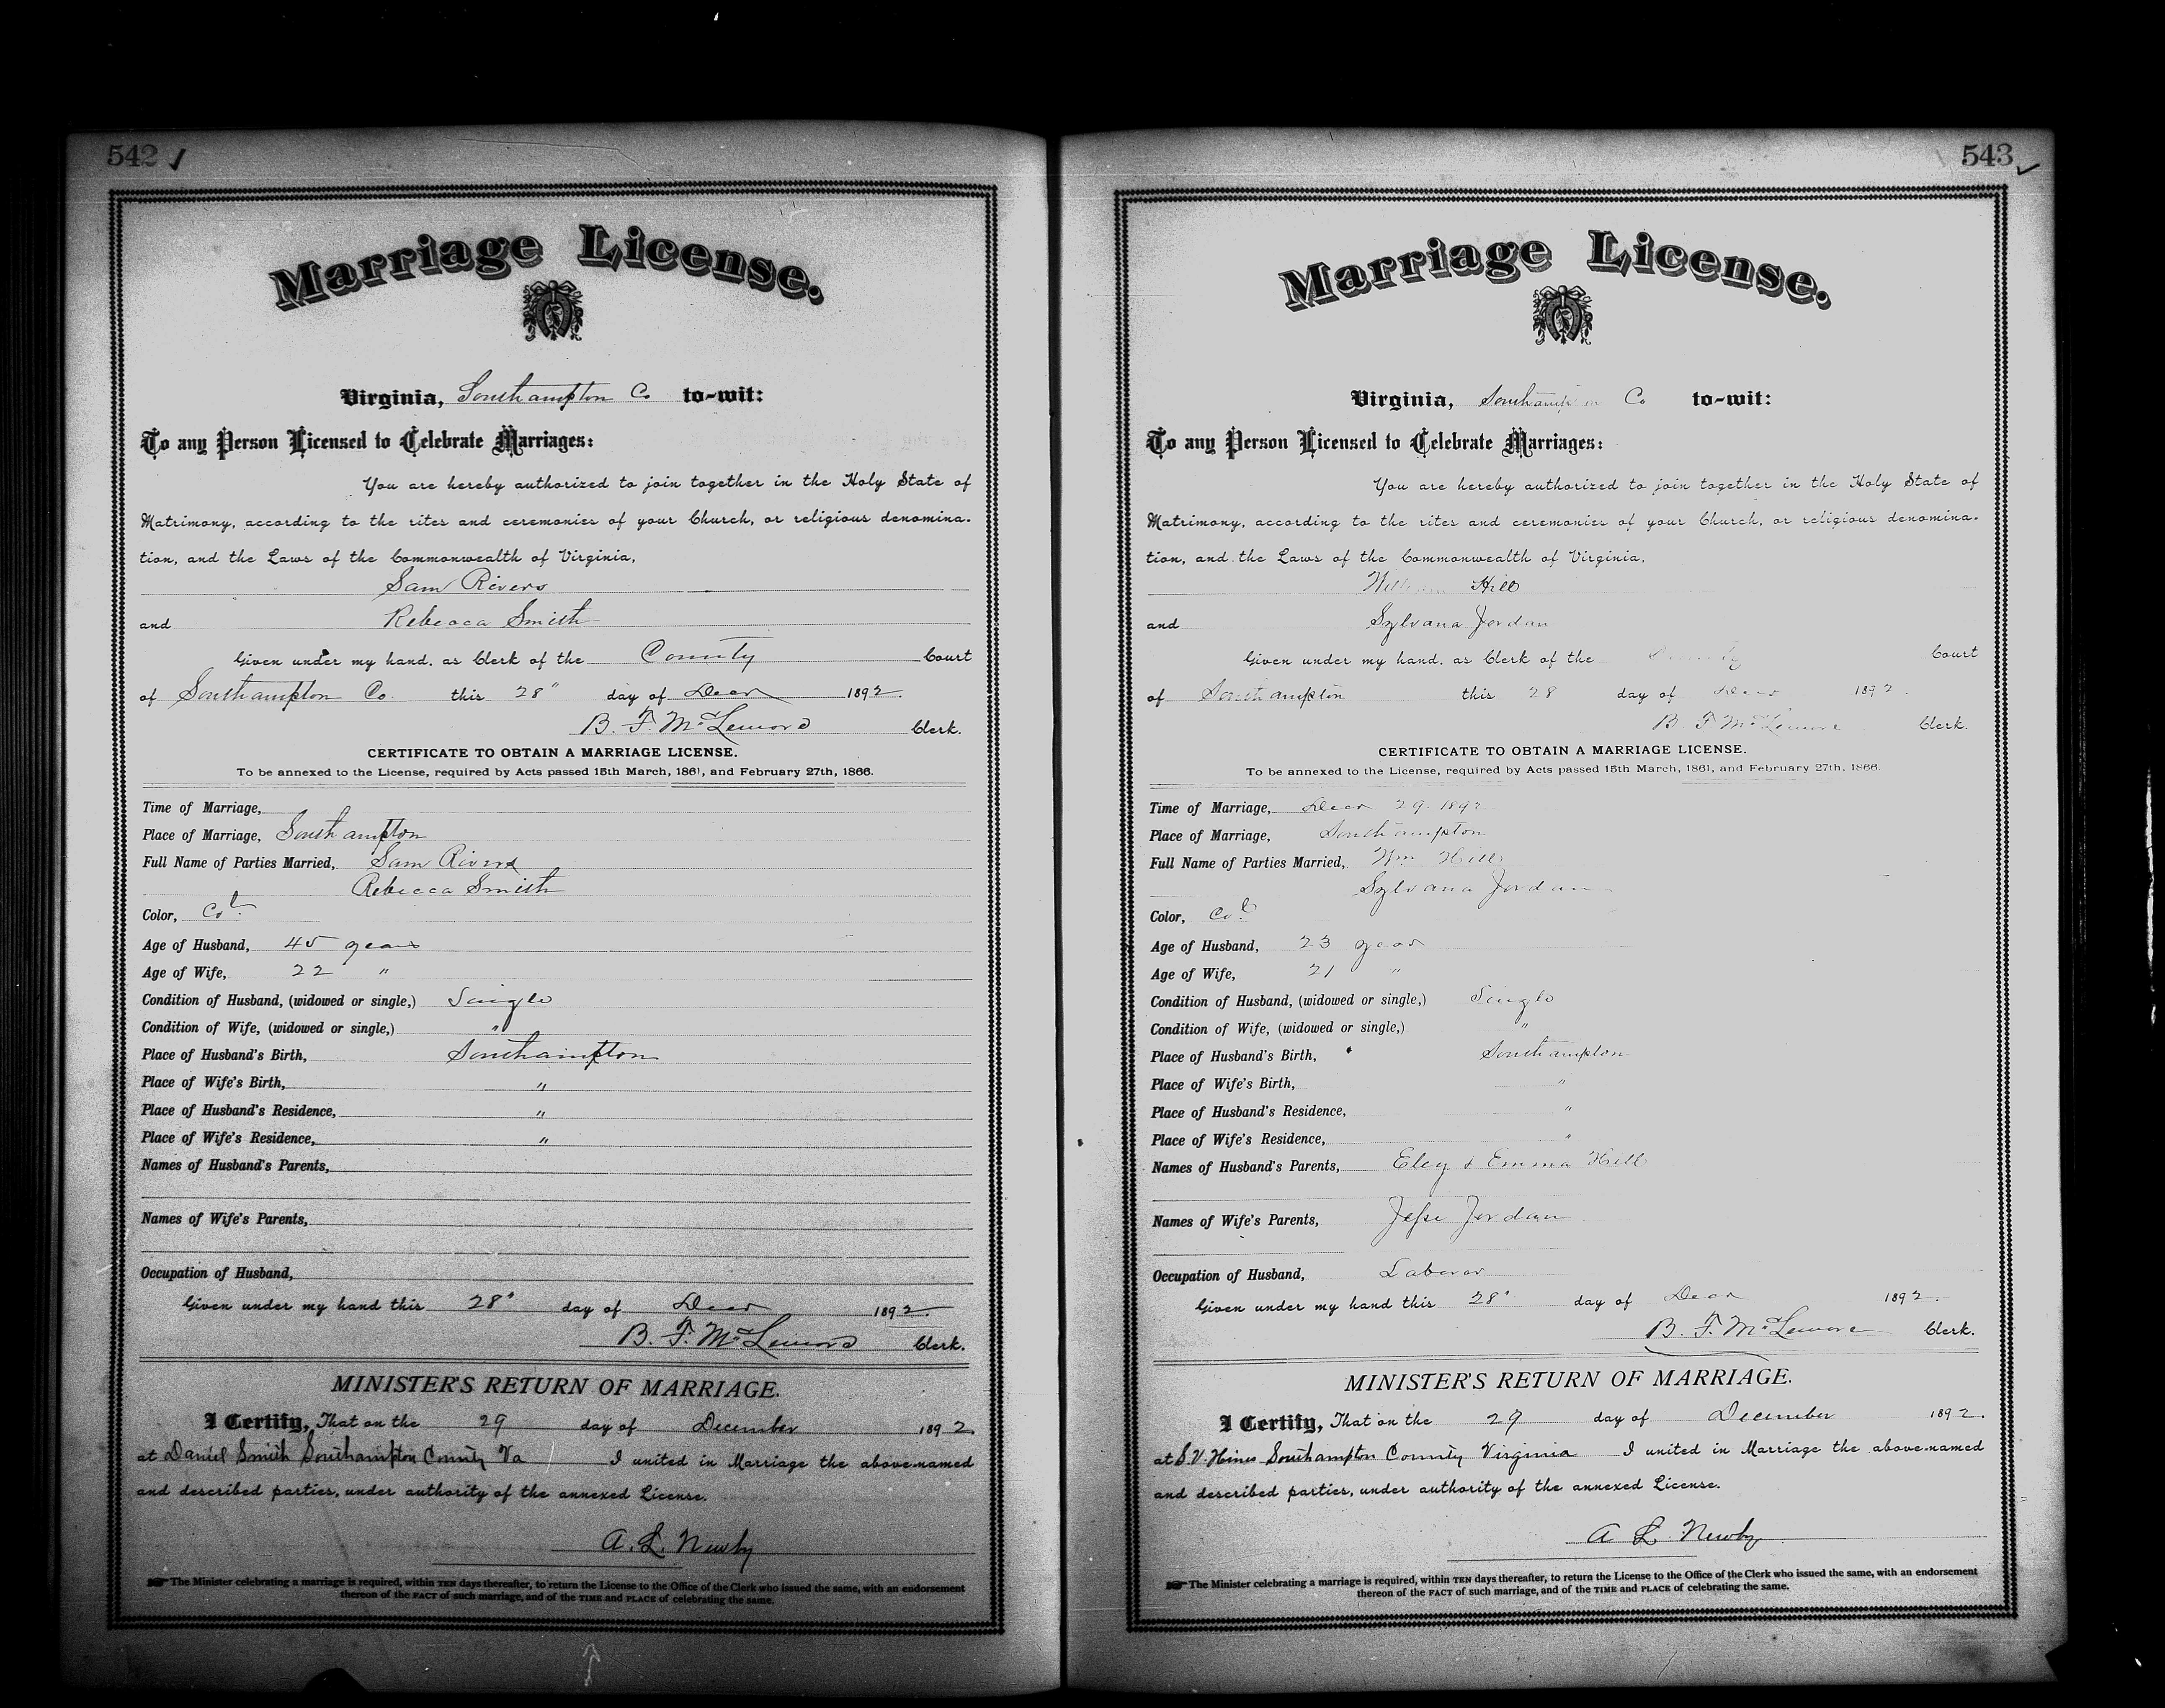 542
Marriage License.
Virginia, Southampton Co to-wit:
To any Person Licensed to Celebrate Marriages:
You are hereby authorized to join together in the Holy State of
Matrimony, according to the rites and ceremonies of your Church, or religious denomina-
tion, and the Laws of the Commonwealth of Virginia,
Sam Rivers
and Rebecca Smith
Given under my hand, as Clerk of the County Court
of Southampton Co. this 28" day of Decr 1892.
B. F. McLemore Clerk.
CERTIFICATE TO OBTAIN A MARRIAGE LICENSE.
To be annexed to the License, required by Acts passed 15th March, 1861, and February 27th, 1866.
Time of Marriage,
Place of Marriage, Southampton
Full Name of Parties Married, Sam Rivers
Rebecca Smith
Color, Col.
Age of Husband, 45 years
Age of Wife, 22 "
Condition of Husband, (widowed or single,) Single
Condition of Wife, (widowed or single,) "
Place of Husband's Birth, Southampton
Place of Wife's Birth, "
Place of Husband's Residence, "
Place of Wife's Residence, "
Names of Husband's Parents,
Names of Wife's Parents,
Occupation of Husband,
Given under my hand this 28" day of Decr 1892.
B. F. McLemore Clerk.
MINISTER'S RETURN OF MARRIAGE.
I Certify, That on the 29 day of December 1892
at Daniel Smith Southampton County Va I united in Marriage the above-named
and described parties, under authority of the annexed License.
A. L. Newby
The Minister celebrating a marriage is required, within TEN days thereafter, to return the License to the Office of the Clerk who issued the same, with an endorsement
thereof of the FACT of such marriage, and of the TIME and PLACE of celebrating the same.
543
Marriage License.
Virginia, Southampton Co to-wit:
To any Person Licensed to Celebrate Marriages:
You are hereby authorized to join together in the Holy State of
Matrimony, according to the rites and ceremonies of your Church, or religious denomina-
tion, and the Laws of the Commonwealth of Virginia,
William Hill
and Sylvana Jordan
Given under my hand, as Clerk of the County Court
of Southampton this 28 day of Decr 1892.
B. F. McLemore Clerk.
CERTIFICATE TO OBTAIN A MARRIAGE LICENSE.
To be annexed to the License, required by Acts passed 15th March, 1861, and February 27th, 1866.
Time of Marriage, Decr 29. 1892
Place of Marriage, Southampton
Full Name of Parties Married, Wm Hill
Sylvana Jordan
Color, Col.
Age of Husband, 23 years
Age of Wife, 21 "
Condition of Husband, (widowed or single,) Single
Condition of Wife, (widowed or single,) "
Place of Husband's Birth, Southampton
Place of Wife's Birth, "
Place of Husband's Residence, "
Place of Wife's Residence, "
Names of Husband's Parents, Eley & Emma Hill
Names of Wife's Parents, Jesse Jordan
Occupation of Husband, Laborer
Given under my hand this 28" day of Decr 1892.
B. F. McLemore Clerk.
MINISTER'S RETURN OF MARRIAGE.
I Certify, That on the 29 day of December 1892.
at S. V. Hines Southampton County Virginia I united in Marriage the above-named
and described parties, under authority of the annexed License.
A L Newby
The Minister celebrating a marriage is required, within TEN days thereafter, to return the License to the Office of the Clerk who issued the same, with an endorsement
thereon of the FACT of such marriage, and of the TIME and PLACE of celebrating the same.